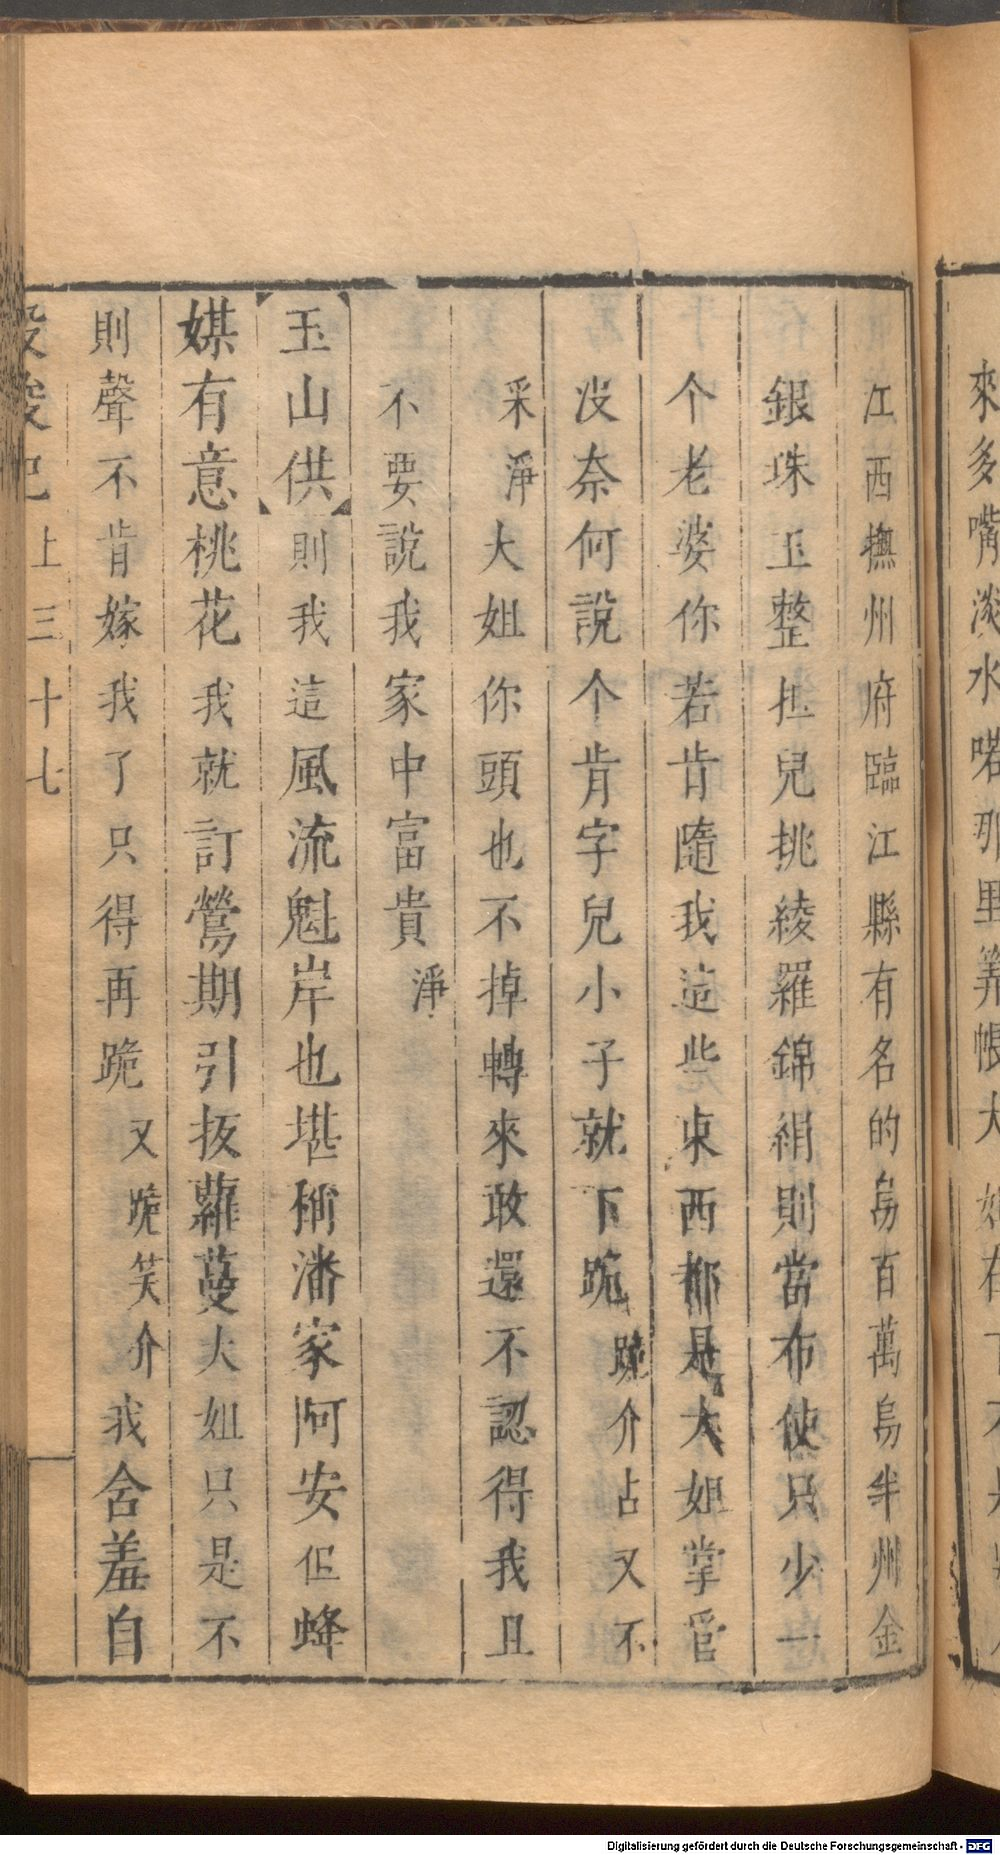 來多嘴淡水喏那里筭帳大
江西撫州府臨江縣有名的烏百萬烏半州金
銀珠玉整担兒挑綾羅錦絹則當布使只少一
个老婆你若肯隨我這些東西都是大姐掌管
没奈何說个肯字兒小子就下跪跪介占又不
采淨大姐你頭也不掉轉來敢還不認得我且
不要說我家中富貴淨
玉山供則我這風流魁岸也堪稱潘家阿安但蜂
媒有意桃花我就訂鶯期引扳蘿蔓大姐只是不
則聲不肯嫁我了只得再跪又跪笑介我含羞自
上三十七
Digitalisierung gefördert durch die Deutsche Forschungsgemeinschaft - DFG